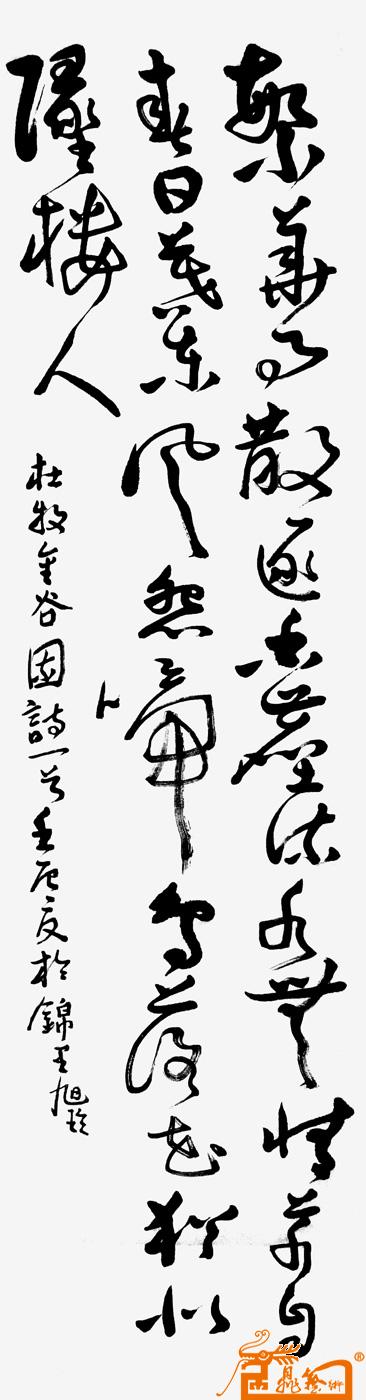 繁華事散逐香塵流水無情草自
春日暮東風怨啼鳥落花猶似
墜樓人
杜牧金谷園詩一首壬辰夏於錦王旭